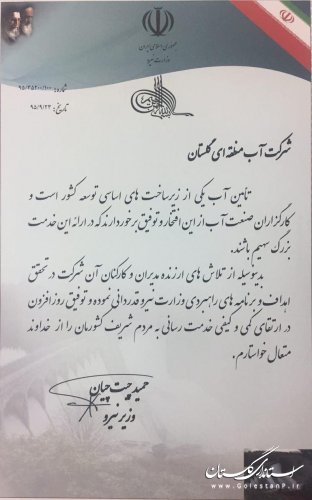 جمهوری اسلامی ایران
وزارت نیرو
شماره: ۹۵/۳۵۲۰۰/۱۰۰
تاریخ: ۹۵/۹/۲۳
شرکت آب منطقه ای گلستان
تأمین آب یکی از زیرساخت های اساسی توسعه کشور است و
کارگزاران صنعت آب از این افتخار و توفیق برخوردارند که در ارائه این خدمت
بزرگ سهیم باشند.
بدینوسیله از تلاش های ارزنده مدیران و کارکنان آن شرکت در تحقق
اهداف و برنامه های راهبردی وزارت نیرو قدردانی نموده و توفیق روزافزون
در ارتقای کمی و کیفی خدمت رسانی به مردم شریف کشورمان را از خداوند
متعال خواستارم.
حمید چیت چیان
وزیر نیرو
استانداری گلستان
www.GolestanP.ir